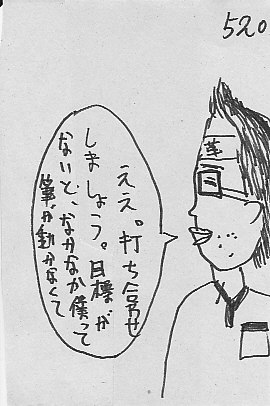 520
ええ。打ち合せ
しましょう。目標が
ないと、なかなか僕って
筆が動かなくて